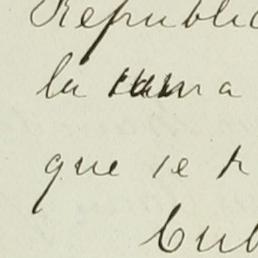 Republic
la
que se
Cub